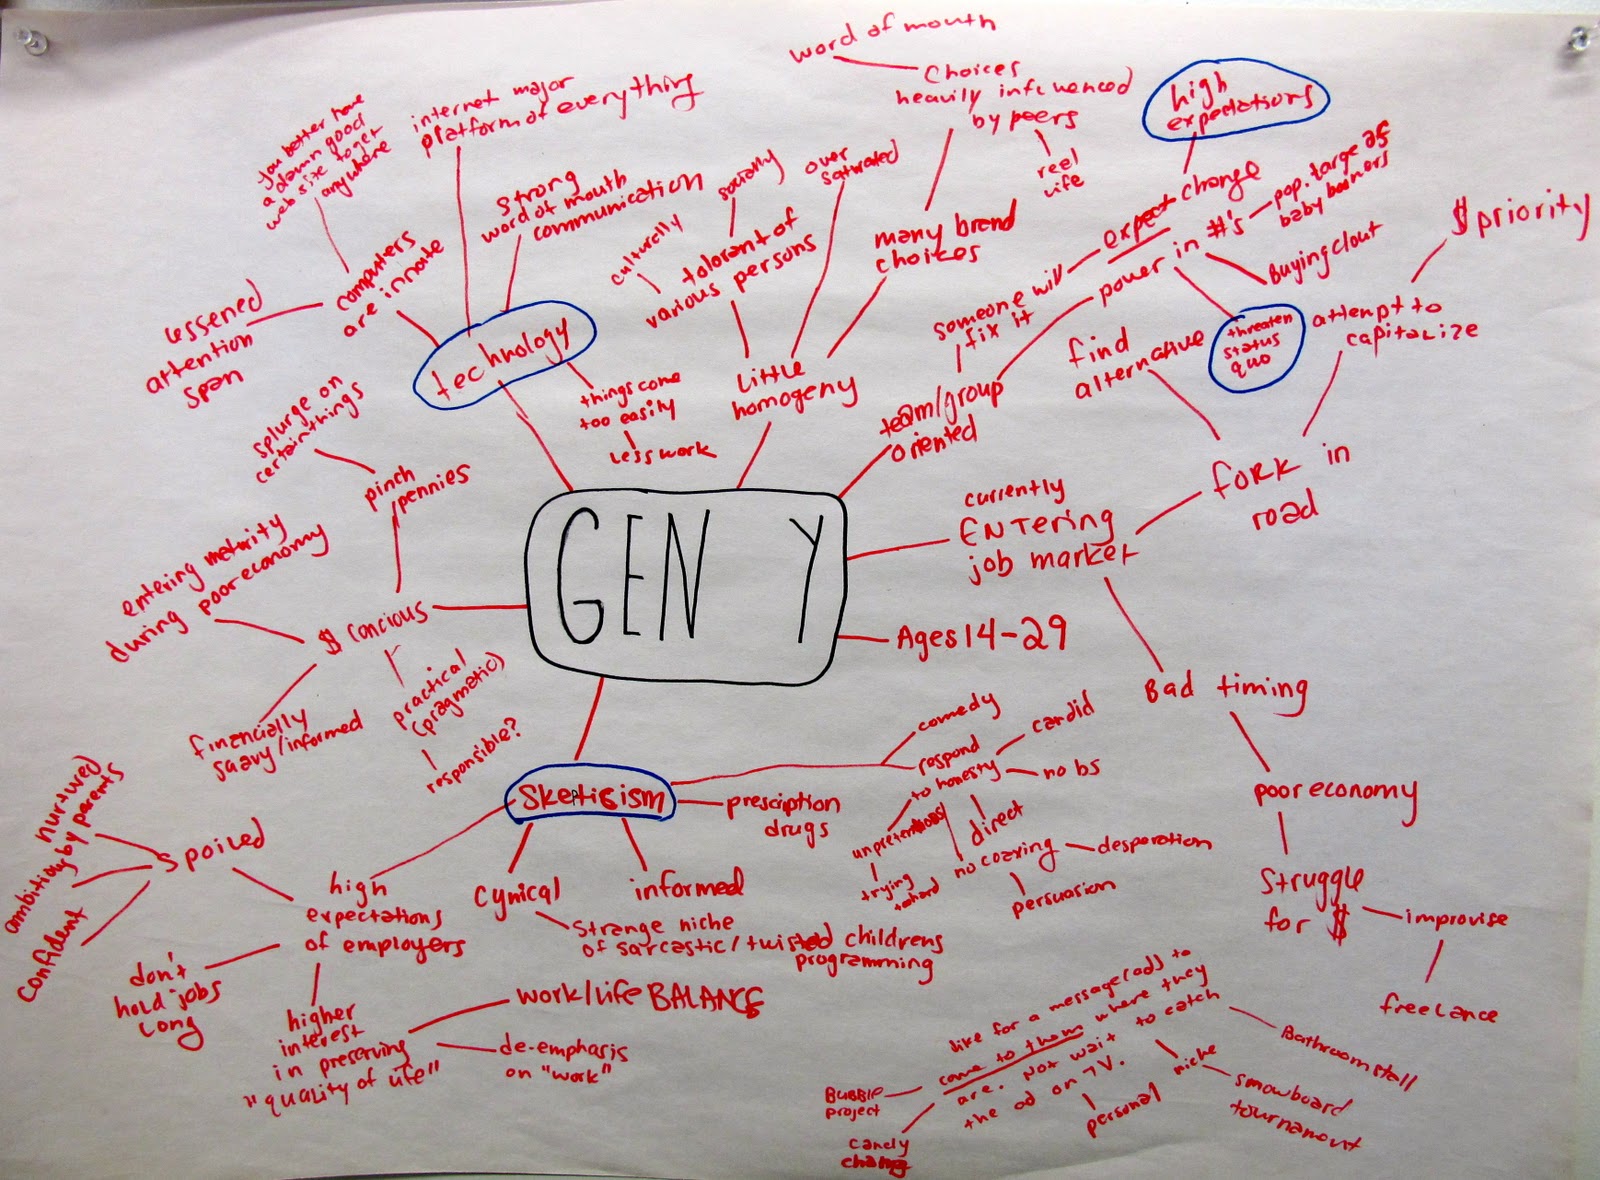 GEN Y
technology
computers
are innate
you better have
a damn good
web site to get
anywhere
lessened
attention
span
internet major
platform of everything
strong
word of mouth
communication
things come
too easily
less work
Little
homogeny
tolorant of
various persons
culturally
socially
over
saturated
many brend
choices
Choices
heavily influenced
by peers
word of mouth
reel
life
team/group
oriented
someone will
fix it
expect change
high
expectations
power in #'s
pop. targe as
baby boomers
Buying clout
threaten
status
quo
currently
ENTering
job market
fork in
road
find
alternative
attempt to
capitalize
$ priority
Bad timing
poor economy
Struggle
for $
improvise
freelance
Ages 14-29
$ concious
pinch
pennies
splurge on
certain things
entering maturity
during poor economy
financially
saavy/informed
practical
(pragmatic)
responsible?
Skepticism
presciption
drugs
comedy
respond
to honesty
candid
no bs
direct
trying
no coaxing
desperation
persuasion
informed
cynical
strange niche
of sarcastic/twisted childrens
programming
high
expectations
of employers
spoiled
nurtured
by parents
ambitious
confident
don't
hold jobs
long
higher
interest
in preserving
"quality of life"
work/life BALANCE
de-emphasis
on "work"
like for a message(ad) to
come to them where they
are. Not wait to catch
the ad on TV.
Bubble
project
candy
personal
niche
Bathroom stall
snowboard
tournamout